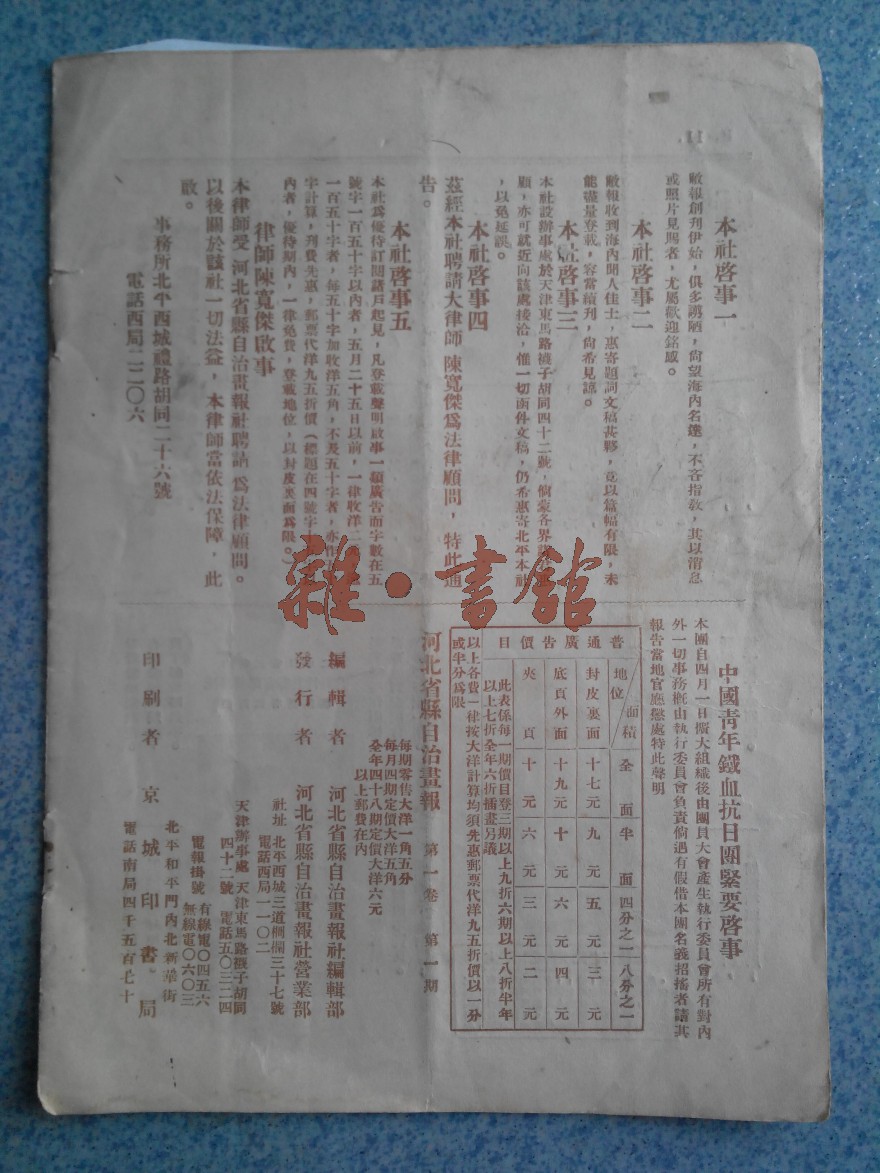 本社啓事一
敝報創刊伊始，俱多謭陋，尙望海內名達，不吝指敎，其以消息
或照片見賜者，尤屬歡迎銘感。
本社啓事二
敝報收到海內聞人佳士，惠寄題詞文稿甚夥，竟以篇幅有限，未
能盡量登載，容當續刋，尙希見諒。
本社啓事三
本社設辦事處於天津東馬路襪子胡同四十二號，倘蒙各界
顧，亦可就近向該處接洽，惟一切函件文稿，仍希惠寄北平本社
，以免延誤。
本社啓事四
茲經本社聘請大律師 陳寬傑爲法律顧問，特此通
告。
本社啓事五
本社爲優待訂閱諸戶起見，凡登載聲明啟事一類廣告而字數在五
號字一百五十字以內者，五月二十五日以前，一律收洋二
一百五十字者，每五十字加收洋五角，不及五十字者，亦作五
字計算，刋費先惠，郵票代洋九五折價（標題在四號字
內者，優待期內，一律免費，登載地位，以封皮裏面爲限。
律師陳寬傑啟事
本律師受 河北省縣自治畫報社聘請 爲法律顧問。
以後關於該社一切法益，本律師當依法保障，此
啟。
事務所北平西城禮路胡同二十六號
電話西局二二〇六
中國青年鐵血抗日團緊要啓事
本團自四月一日擴大組織後由團員大會產生執行委員會所有對內
外一切事務槪由執行委員會負責倘遇有假借本團名義招搖者請其
報告當地官廳懲處特此聲明
普通廣告價目
地位／面積 全面 半面 四分之一 八分之一
封皮裏面 十七元 九元 五元 三元
底頁外面 十九元 十元 六元 四元
夾頁 十元 六元 三元 二元
此表係每一期價目登三期以上九折六期以上八折半年
以上七折全年六折插畫另議
以上各費一律按大洋計算均須先惠郵票代洋九五折價以一分
或半分爲限
河北省縣自治畫報 第一卷 第一期
每期零售大洋一角五分
每月四期定價大洋五角
全年四十八期定價大洋六元
以上郵費在內
編輯者 河北省縣自治畫報社編輯部
發行者 河北省縣自治畫報社營業部
社址 北平西城三道柵欄三十七號
電話西局一一〇二
天津辦事處 天津東馬路襪子胡同
四十二號 電話五〇三二四
電報掛號 有線電〇四五六
無線電〇六〇三
印刷者 京城印書局
北平和平門內北新華街
電話南局四千五百七十
雜·書館